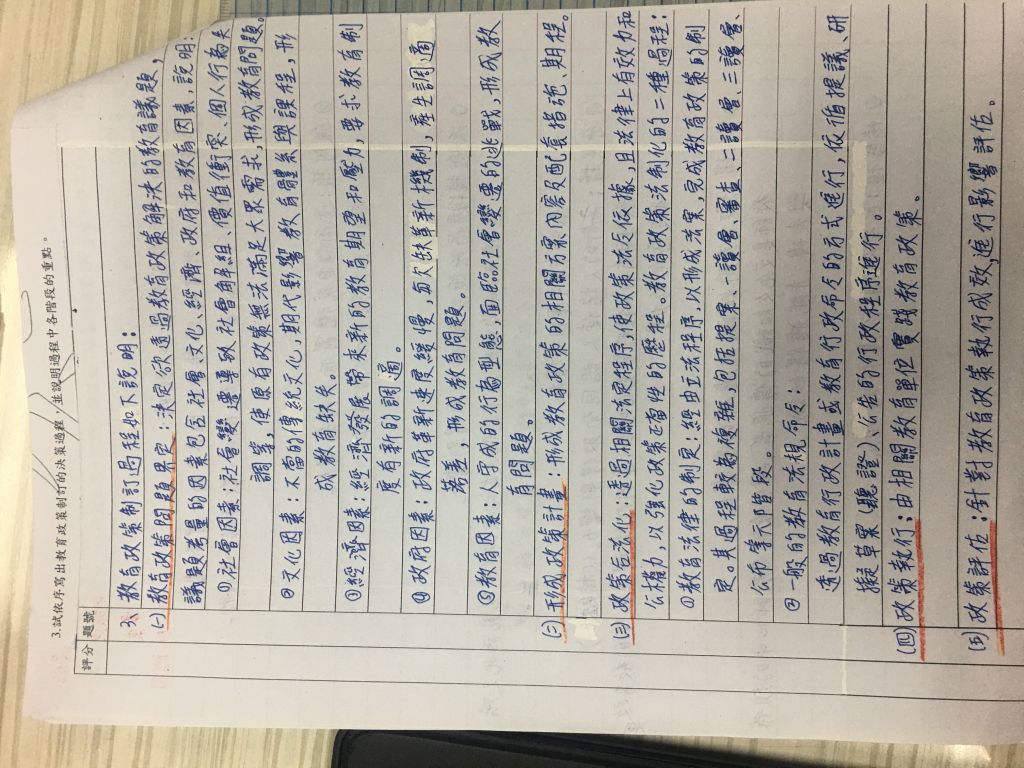 3.試依序寫出教育政策制訂的決策過程，並說明過程中各階段的重點。
評分 題號
3. 教育政策制訂過程如下說明：
(一) 教育政策問題界定：決定欲透過教育政策解決的教育議題，
議題考量的因素包含社會、文化、經濟、政府和教育因素，說明：
①社會因素：社會變遷導致社會解組、價值衝突、個人行為失
調等，使原有政策無法滿足大眾需求，形成教育問題。
②文化因素：不當的傳統文化，期代影響教育體系與課程，形
成教育缺失。
③經濟因素：經濟發展帶來新的教育期望和壓力，要求教育制
度有新的調適。
④政府因素：政府革新速度緩慢，而欠缺革新機制，產生調適
落差，形成教育問題。
⑤教育因素：人才成的行為型態，面臨社會變遷的挑戰，形成教
育問題。
(二) 形成政策計畫：形成教育政策的相關方案內容及配套措施、期程。
(三) 政策合法化：透過相關法定程序，使政策法反依據，且法律上有效力和
公權力，以強化政策正當性的歷程。教育政策法制化的二種過程：
①教育法律的制定：經由立法程序，以形成法案，完成教育政策的制
定。其過程較為複雜，包括提案、一讀會、審查、二讀會、三讀會、
公布等六階段。
②一般的教育法規命令：
透過教育行政計畫或教育行政命令的方式進行，依循提議、研
擬定草案（聽證）、公告的行政程序進行。
(四) 政策執行：由相關教育單位實踐教育政策。
(五) 政策評估：針對教育政策執行成效，進行影響評估。